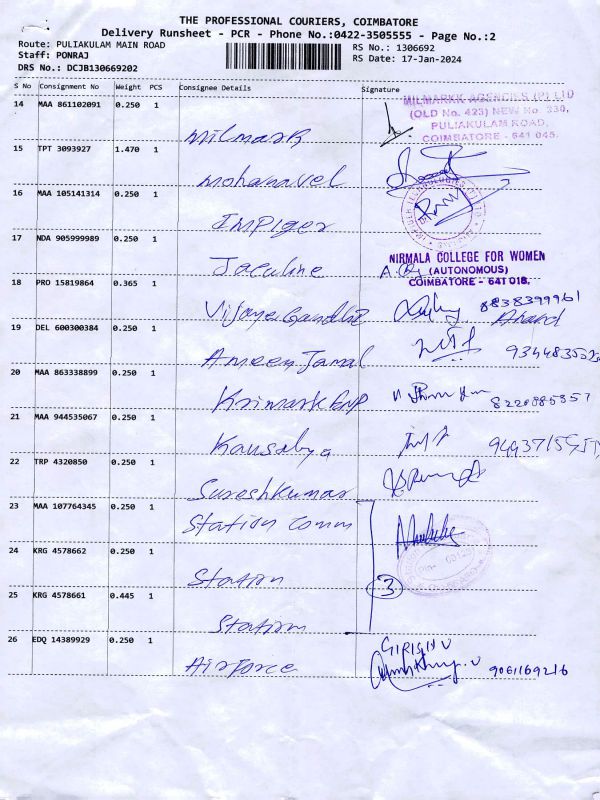 THE PROFESSIONAL COURIERS, COIMBATORE
Delivery Runsheet - PCR - Phone No.:0422-3505555 - Page No.:2
Route: PULIAKULAM MAIN ROAD
RS No.: 1306692
Staff: PONRAJ
RS Date: 17-Jan-2024
DRS No.: DCJB130669202
S No Consignment No Weight PCS Consignee Details Signature
14 MAA 861102091 0.250 1
MILMARKK AGENCIES (P) LTD
(OLD No. 423) NEW No. 330,
PULIAKULAM ROAD,
COIMBATORE - 641 045.
Milmark
15 TPT 3093927 1.470 1
Mohanavel
16 MAA 105141314 0.250 1
IMPIger
17 NDA 905999989 0.250 1
NIRMALA COLLEGE FOR WOMEN
(AUTONOMOUS)
COIMBATORE - 641 018.
Jaculine
18 PRO 15819864 0.365 1
8838399961
Anand
Vijaya Gandhi
19 DEL 600300384 0.250 1
Ameen Jamal
20 MAA 863338899 0.250 1
Krimark Enp
8220885357
21 MAA 944535067 0.250 1
Kausalya
22 TRP 4320850 0.250 1
Sureshkumar
23 MAA 107764345 0.250 1
Station Comm
24 KRG 4578662 0.250 1
Station
3
25 KRG 4578661 0.445 1
Station
26 EDQ 14389929 0.250 1
GIRISH U
Airforce
9061169216